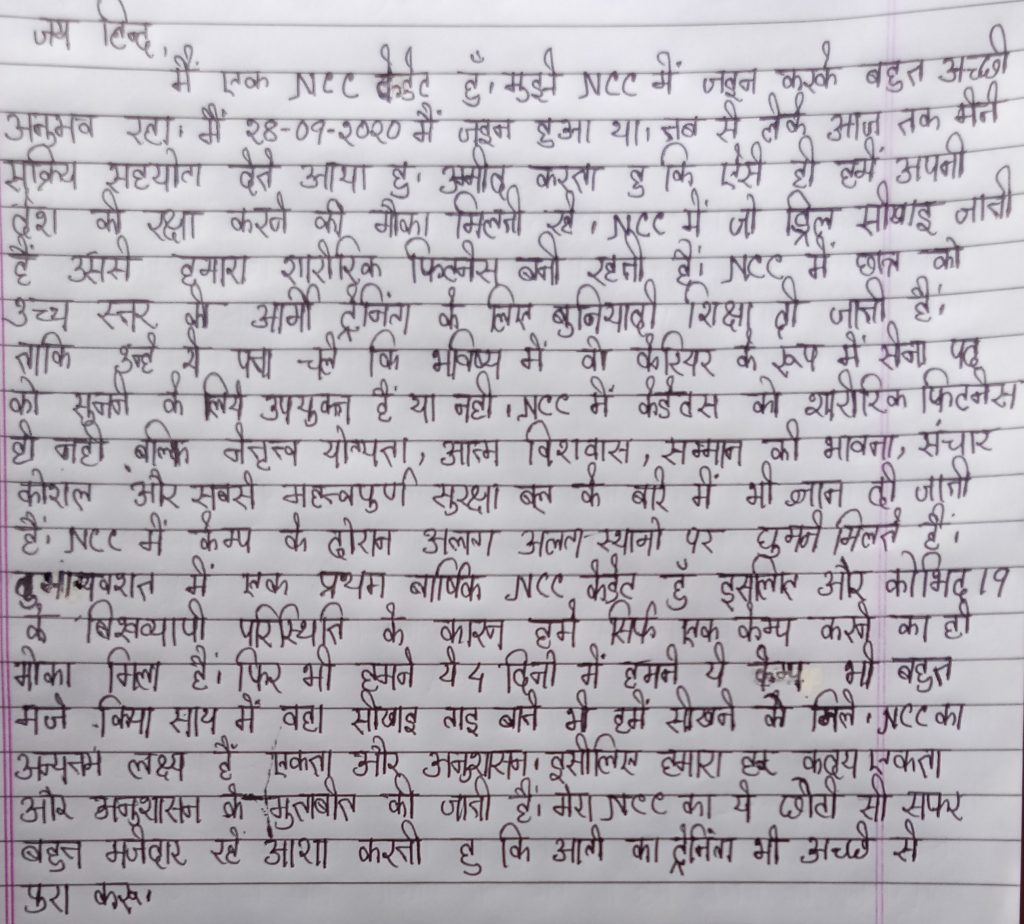 जय हिन्द,
मैं एक NCC केडेट हुँ। मुझे NCC में जइन करके बहुत अच्छी
अनुभव रहा। मैं २8-09-२०२० में जइन हुआ था। तब से लेके आज तक मैने
सक्रिय सहयोग देते आया हु। उमीद करता हु कि ऐसे ही हमें अपनी
देश की रक्षा करने की मौका मिलती रहे। NCC में जो ड्रिल सीखाइ जाती
हैं उससे हमारा शारीरिक फिटनेस बनी रहती हैं। NCC में छात्र को
उच्च स्तर से आर्मी ट्रेनिंग के लिए बुनियादी शिक्षा दी जाती हैं।
ताकि उन्हे ये पता चले कि भविष्य में वो कैरियर के रूप में सेना पद
को चुनने के लिये उपयुक्त हैं या नही। NCC में केडेतस को शारीरिक फिटनेस
ही नही बल्कि नेतृत्त्व योग्यता, आत्म विशवास, सम्मान की भावना, संचार
कौशल और सबसे महत्त्वपुर्ण सुरक्षा बल के बारे में भी ज्ञान दी जाती
हैं। NCC में केम्प के दौरान अलग अलग स्थानो पर घुमने मिलते हैं।
दुर्भाग्यवशत में एक प्रथम बार्षिक NCC केडेट हुँ इसलिए और कोभिद 19
के बिश्वव्यापी परिस्थिति के कारन हमे सिर्फ एक केम्प करने का ही
मोका मिला हैं। फिर भी हमने ये 4 दिनो में हमने ये केम्प भी बहुत
मजे किया साथ में वहा सीखाइ गइ बाते भी हमें सीखने को मिले। NCC का
अन्यतम लक्ष्य हैं एकता और अनुशासन। इसीलिए हमारा हर कतृय एकता
और अनुशासन के मुताबीत की जाती हैं। मेरा NCC का ये छोटी सी सफर
बहुत मजेदार रहे आशा करती हु कि आगे का ट्रेनिंग भी अच्छे से
पुरा करू।